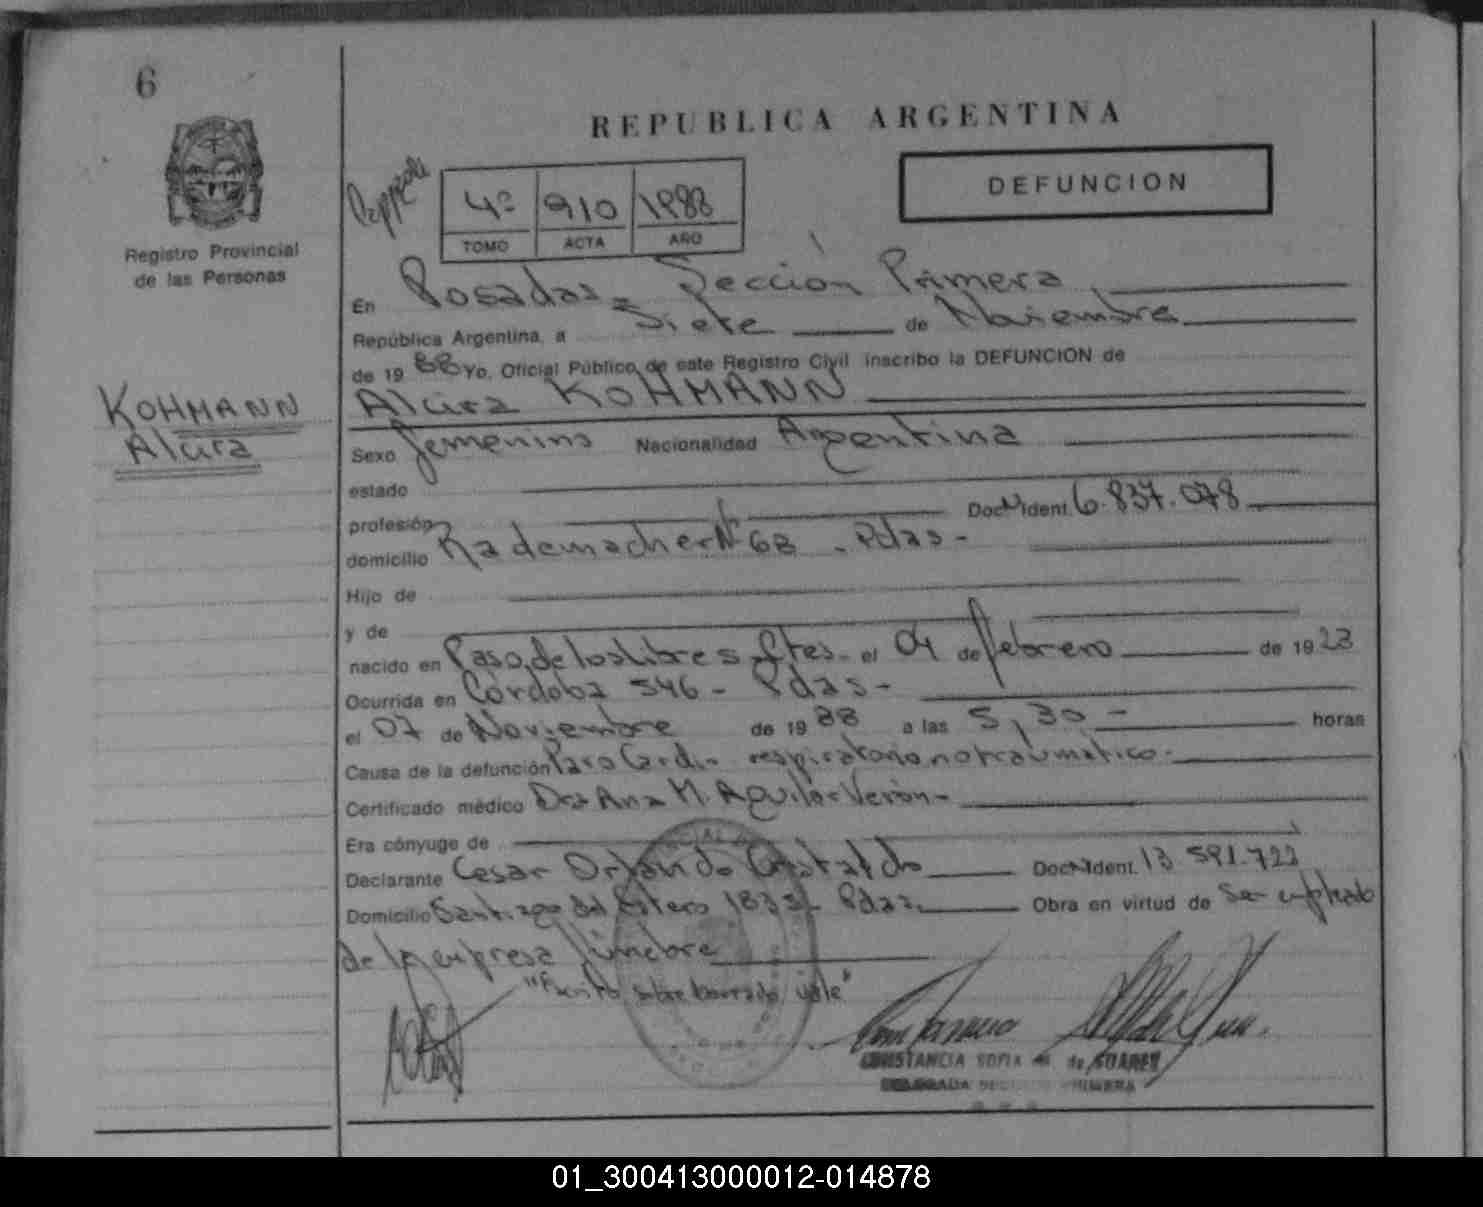 6
REPUBLICA ARGENTINA
DEFUNCION
4º 910 1988
TOMO ACTA AÑO
Registro Provincial
de las Personas
En Posadas - Sección Primera
República Argentina, a Siete de Noviembre
de 1988 Yo, Oficial Público de este Registro Civil inscribo la DEFUNCION de
KOHMANN
Alcira
Alcira KOHMANN
Sexo femenino Nacionalidad Argentina
estado
profesión Doc. Ident. 6.837.078
domicilio Rademacher Nº 68 - Pdas -
Hijo de
y de
nacido en Paso de los Libres - Ctes - el 04 de febrero de 1923
Ocurrida en Córdoba 546 - Pdas -
el 07 de Noviembre de 1988 a las 5,30 - horas
Causa de la defunción Paro Cardio respiratorio no traumático -
Certificado médico Dra Ana M. Aguilar Verón -
Era cónyuge de
Declarante Cesar Orlando Doc. Ident. 13.591.722
Domicilio Santiago del Estero 1835 - Pdas Obra en virtud de Ser empleado
de la empresa fúnebre
"Escrito sobre borrado vale"
CONSTANCIA SOFIA de SUAREZ
DELEGADA SECCION PRIMERA
01_300413000012-014878